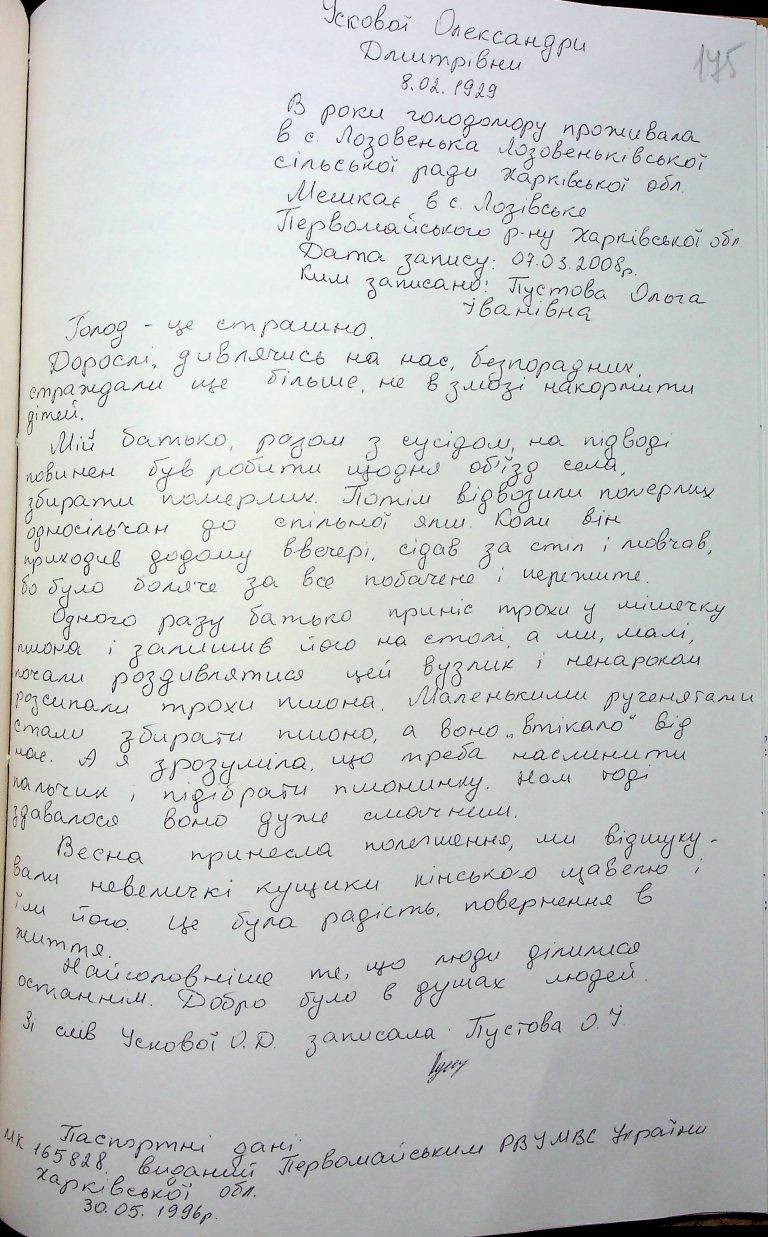 Ускової Олександри
Дмитрівни
175
8.02.1929
В роки голодомору проживала
в с. Лозовенька Лозовеньківської
сільської ради Харківської обл.
Мешкає в с. Лозівське
Первомайського р-ну Харківської обл.
Дата запису: 07.03.2008р.
Ким записано: Пустова Ольга
Іванівна
Голод - це страшно.
Дорослі, дивлячись на нас, безпорадних,
страждали ще більше, не в змозі накормити
дітей.
Мій батько, разом з сусідом, на підводі
повинен був робити щодня об'їзд села,
збирати померлих. Потім відвозили померлих
односільчан до спільної ями. Коли він
приходив додому ввечері, сідав за стіл і мовчав,
бо було боляче за все побачене і пережите.
Одного разу батько приніс трохи у мішечку
пшона і залишив його на столі, а ми, малі,
почали роздивлятися цей вузлик і ненароком
розсипали трохи пшона. Маленькими рученятами
стали збирати пшоно, а воно „втікало" від
нас. А я зрозуміла, що треба наслинити
пальчик і підібрати пшонинку. Нам тоді
здавалося воно дуже смачним.
Весна принесла полегшення, ми відшуку-
вали невеличкі кущики кінського щавелю і
їли його. Це була радість, повернення в
життя.
Найголовніше те, що люди ділилися
останнім. Добро було в душах людей.
Зі слів Ускової О.Д. записала Пустова О.І.
Паспортні дані
МК 165828, виданий Первомайським РВУМВС України
Харківської обл.
30.05.1996р.